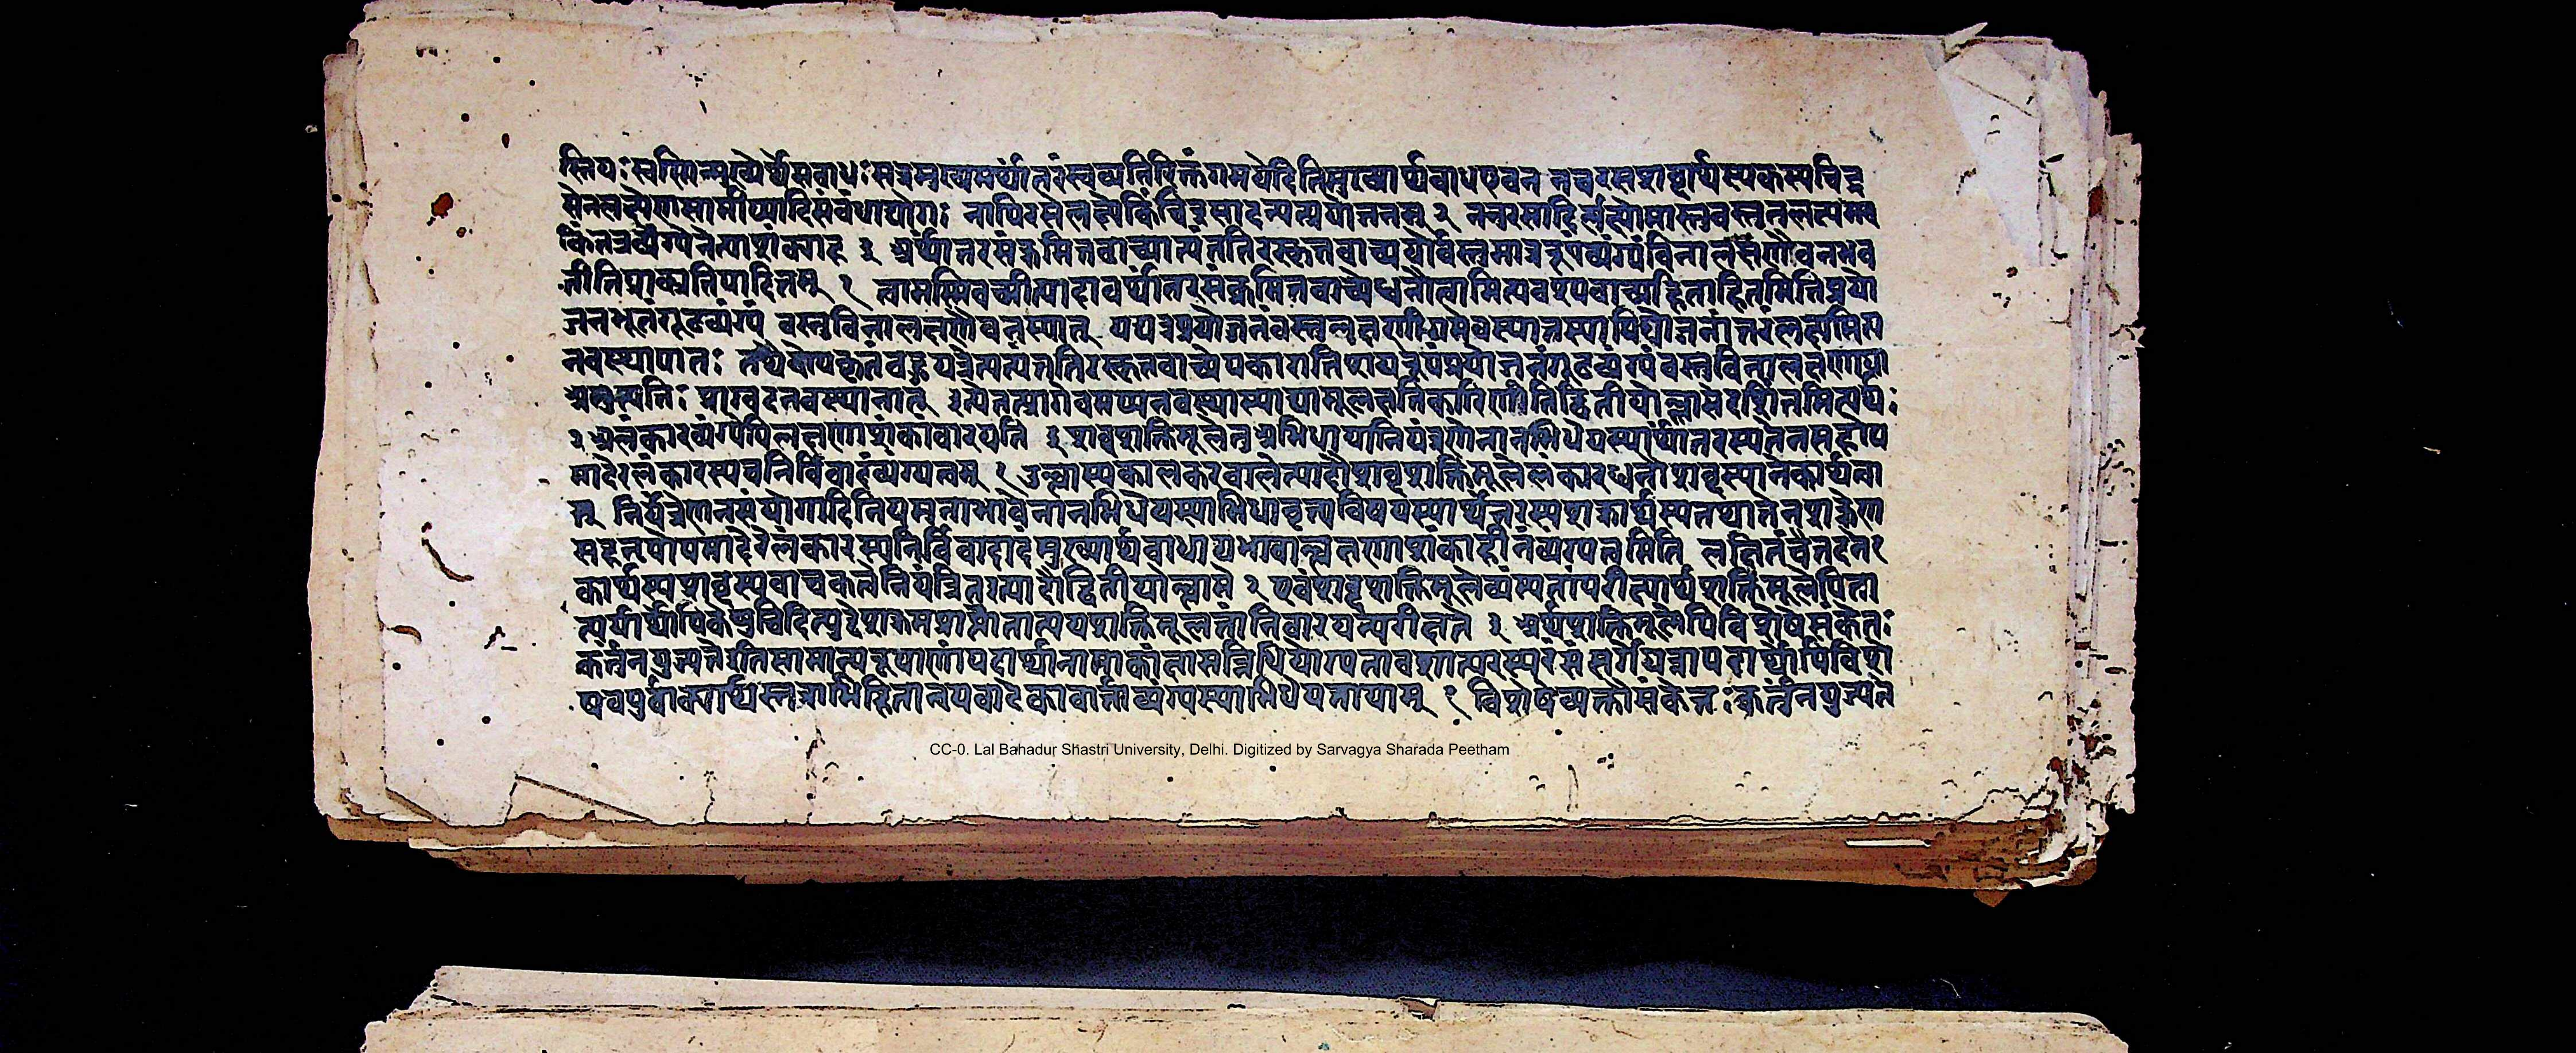 स्तियः स्वस्मिन्मुख्येर्थेसबाधः सदमुख्यमर्थांतरंस्वव्यतिरिक्तंगमयेदितिमुख्यार्थबाधएवन नचरसशब्दार्थस्यकस्यचिद्र
सेनलक्ष्येणसामीप्यादिसंबंधाद्योगः नापिरसेलक्ष्येकिंचिद्रसादन्यत्प्रयोजनम् २ ननुरसादिर्लक्ष्योमास्तुवस्तुतुलक्ष्यमेव
किंतत्रव्यंग्यत्वेनेत्याशंक्याह ३ अर्थान्तरसंक्रमितवाच्यात्यंततिरस्कृतवाच्ययोर्वस्तुमात्ररूपंव्यंग्यंविनालक्षणैवनभव
तीतिप्राक्प्रतिपादितम् १ त्वामस्मिवच्मीत्यादावर्थांतरसंक्रमितवाच्येध्वनौत्वामित्यवश्यवाच्यहिताहितमितिप्रयो
जनभूतंगूढव्यंग्यं वस्तुविनालक्षणैवनस्यात् यद्यत्रप्रयोजनंवस्तुलक्षणीयमेवस्यात्तस्यापिप्रयोजनांतरंलक्ष्यमित्य
नवस्थापातः तथैवोपकृतंबहुयत्रेत्यत्यंततिरस्कृतवाच्येपकारातिशयरूपंप्रयोजनंगूढव्यंग्यंवस्तुविनालक्षणाया
अनुत्पत्तिः प्राग्वदनवस्थानात् इत्येतत्प्रागेवमप्यनवस्थास्याद्यामूलक्षतिकारिणीतिद्वितीयोल्लासेदर्शितमित्यर्थः
२ अलंकारव्यंग्येपिलक्षणाशंकांवारयति ३ शब्दशक्तिमूलेतुअभिधायानियंत्रणेनानभिधेयस्यार्थांतरस्यतेनसहोप
मादेरलंकारस्यचनिर्विवादंव्यंग्यत्वम् १ उल्लास्यकालकरवालेत्यादौशब्दशक्तिमूलेलंकारध्वनौशब्दस्यानेकार्थत्वा
त् नियंत्रणेनसंयोगादिनियमनाभावेनानभिधेयस्याभिधावृत्त्यविषयस्यार्थांतरस्यशक्रार्थस्यतथातेनशक्रेण
सहनृपोपमादेरलंकारस्यनिर्विवादादमुख्यार्थबाधाद्यभावाल्लक्षणाशंकाहीनंव्यंग्यत्वमिति लक्षितंचैतदने
कार्थस्यशब्दस्यवाचकत्वेनियंत्रितइत्यादौद्वितीयोल्लासे २ एवंशब्दशक्तिमूलेव्यंग्यतांपरीत्यार्थशक्तिमूलेपिता
त्पर्यार्थोपिकेषुचिदित्युद्देशक्रमप्राप्तांतात्पर्यशक्तिमूलतांनिवारयन्परीक्षते ३ अर्थशक्तिमूलेपिविशेषेसंकेतः
कर्तुंनयुज्यतेइतिसामान्यरूपाणांपदार्थानामाकांक्षासन्निधियोग्यतावशात्परस्परसंसर्गोयत्रापदार्थोपिविशे
षवपुर्वाक्यार्थस्तत्राभिहितान्वयवादेकावार्ताव्यंग्यस्याभिधेयतायाम् १ विशेषेव्यक्तौसंकेतः कर्तुंनयुज्यते
CC-0. Lal Bahadur Shastri University, Delhi. Digitized by Sarvagya Sharada Peetham